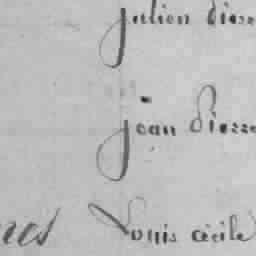 julien pierre
jean pierre
Louis cécile